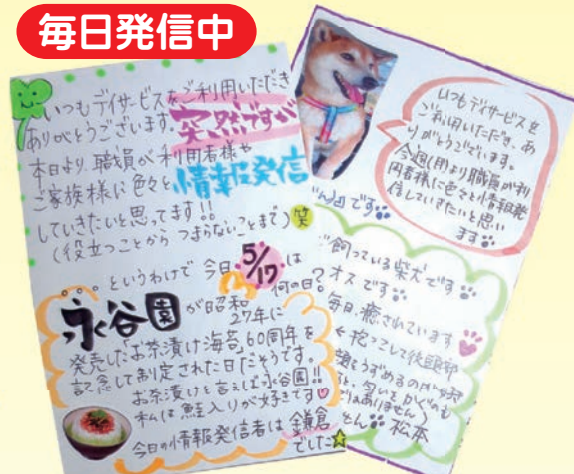 毎日発信中
いつもデイサービスをご利用いただき
ありがとうございます。突然ですが
本日より、職員が利用者様や
ご家族様に色々と情報発信
していきたいと思ってます!!
(役立つことから つまらないことまで)笑
。。。というわけで 今日 5/17 は
何の日?
永谷園が昭和
27年に
発売した「お茶漬け海苔」60周年を
記念して制定された日だそうです。
お茶漬けと言えば永谷園!!
私は鮭入りが好きです
今日の情報発信者は 鎌倉
でした
いつもデイサービスを
ご利用いただき、あ
りがとうございます。
今週(月)より職員が利
用者様に色々と情報発
信していきたいと思い
ます
です
飼っている柴犬です
オスです
毎日、癒されています
抱っこして後頭部
顔をうずめるのが
と、匂いをかぐのも
ではありません
松本